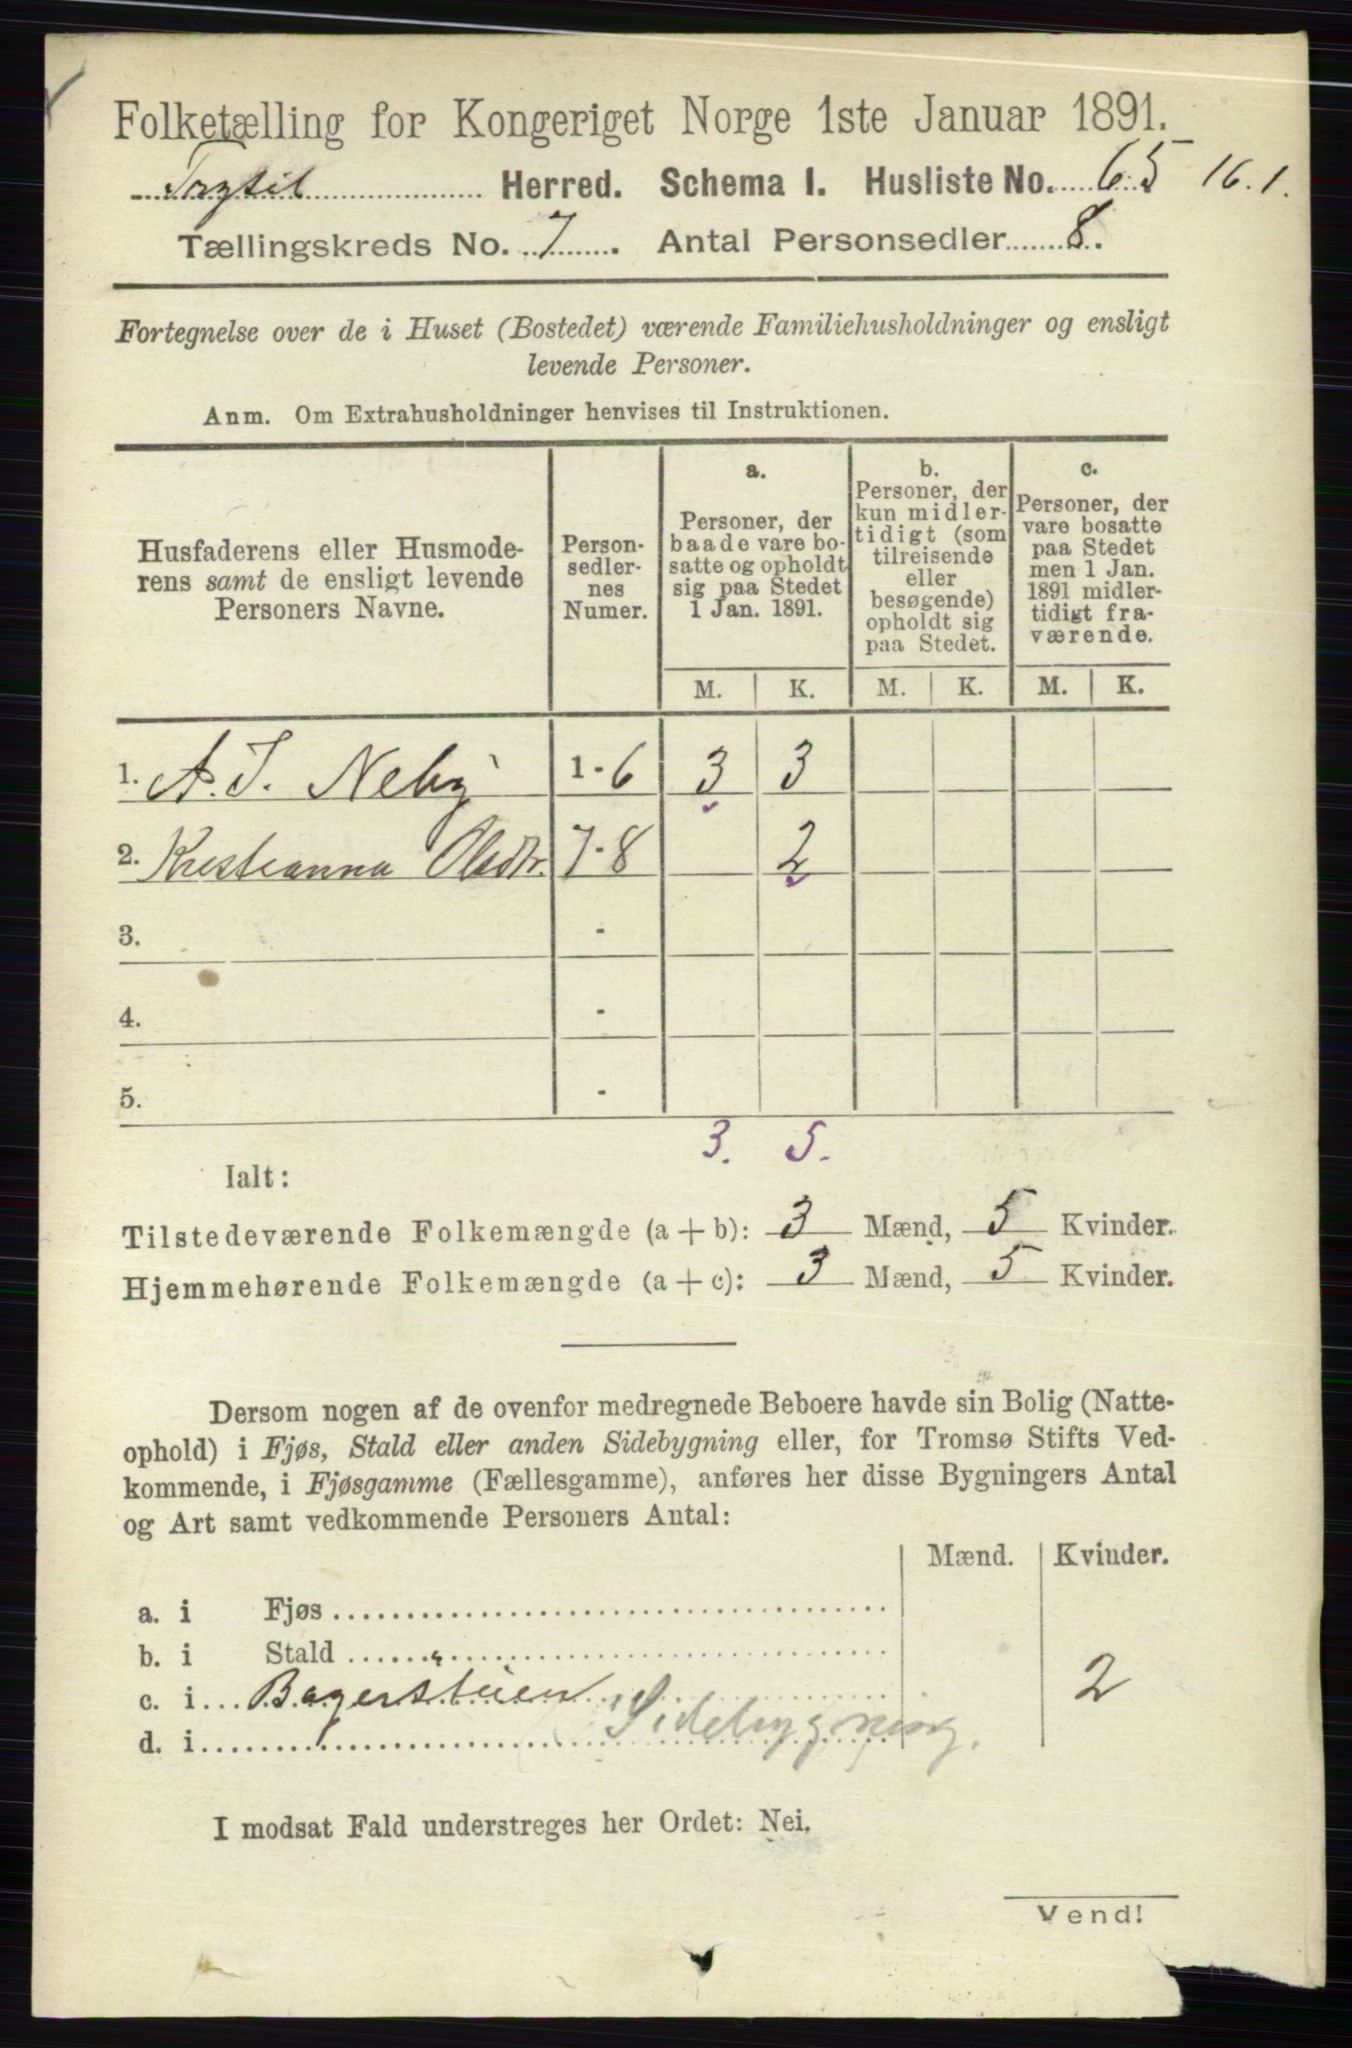 Folketælling for Kongeriget Norge 1ste Januar 1891.
Trysil Herred. Schema I. Husliste No. 65 16.1.
Tællingskreds No. 7. Antal Personsedler 8.
Fortegnelse over de i Huset (Bostedet) værende Familiehusholdninger og ensligt
levende Personer.
Anm. Om Extrahusholdninger henvises til Instruktionen.
Husfaderens eller Husmode-
rens samt de ensligt levende
Personers Navne.
Person-
sedler-
nes
Numer.
a.
Personer, der
baade vare bo-
satte og opholdt
sig paa Stedet
1 Jan. 1891.
b.
Personer, der
kun midler-
tidigt (som
tilreisende
eller
besøgende)
opholdt sig
paa Stedet.
c.
Personer, der
vare bosatte
paa Stedet
men 1 Jan.
1891 midler-
tidigt fra-
værende.
M. K. M. K. M. K.
1. A. J. Neby 1-6 3 3
2. Kristianna Olsdtr. 7-8 2
3. -
4. -
5. -
3. 5.
Ialt:
Tilstedeværende Folkemængde (a + b): 3 Mænd, 5 Kvinder.
Hjemmehørende Folkemængde (a + c): 3 Mænd, 5 Kvinder.
Dersom nogen af de ovenfor medregnede Beboere havde sin Bolig (Natte-
ophold) i Fjøs, Stald eller anden Sidebygning eller, for Tromsø Stifts Ved-
kommende, i Fjøsgamme (Fællesgamme), anføres her disse Bygningers Antal
og Art samt vedkommende Personers Antal:
Mænd. Kvinder.
a. i Fjøs
b. i Stald
c. i Bagerstuen 2
d. i Sidebygning.
I modsat Fald understreges her Ordet: Nei.
Vend!